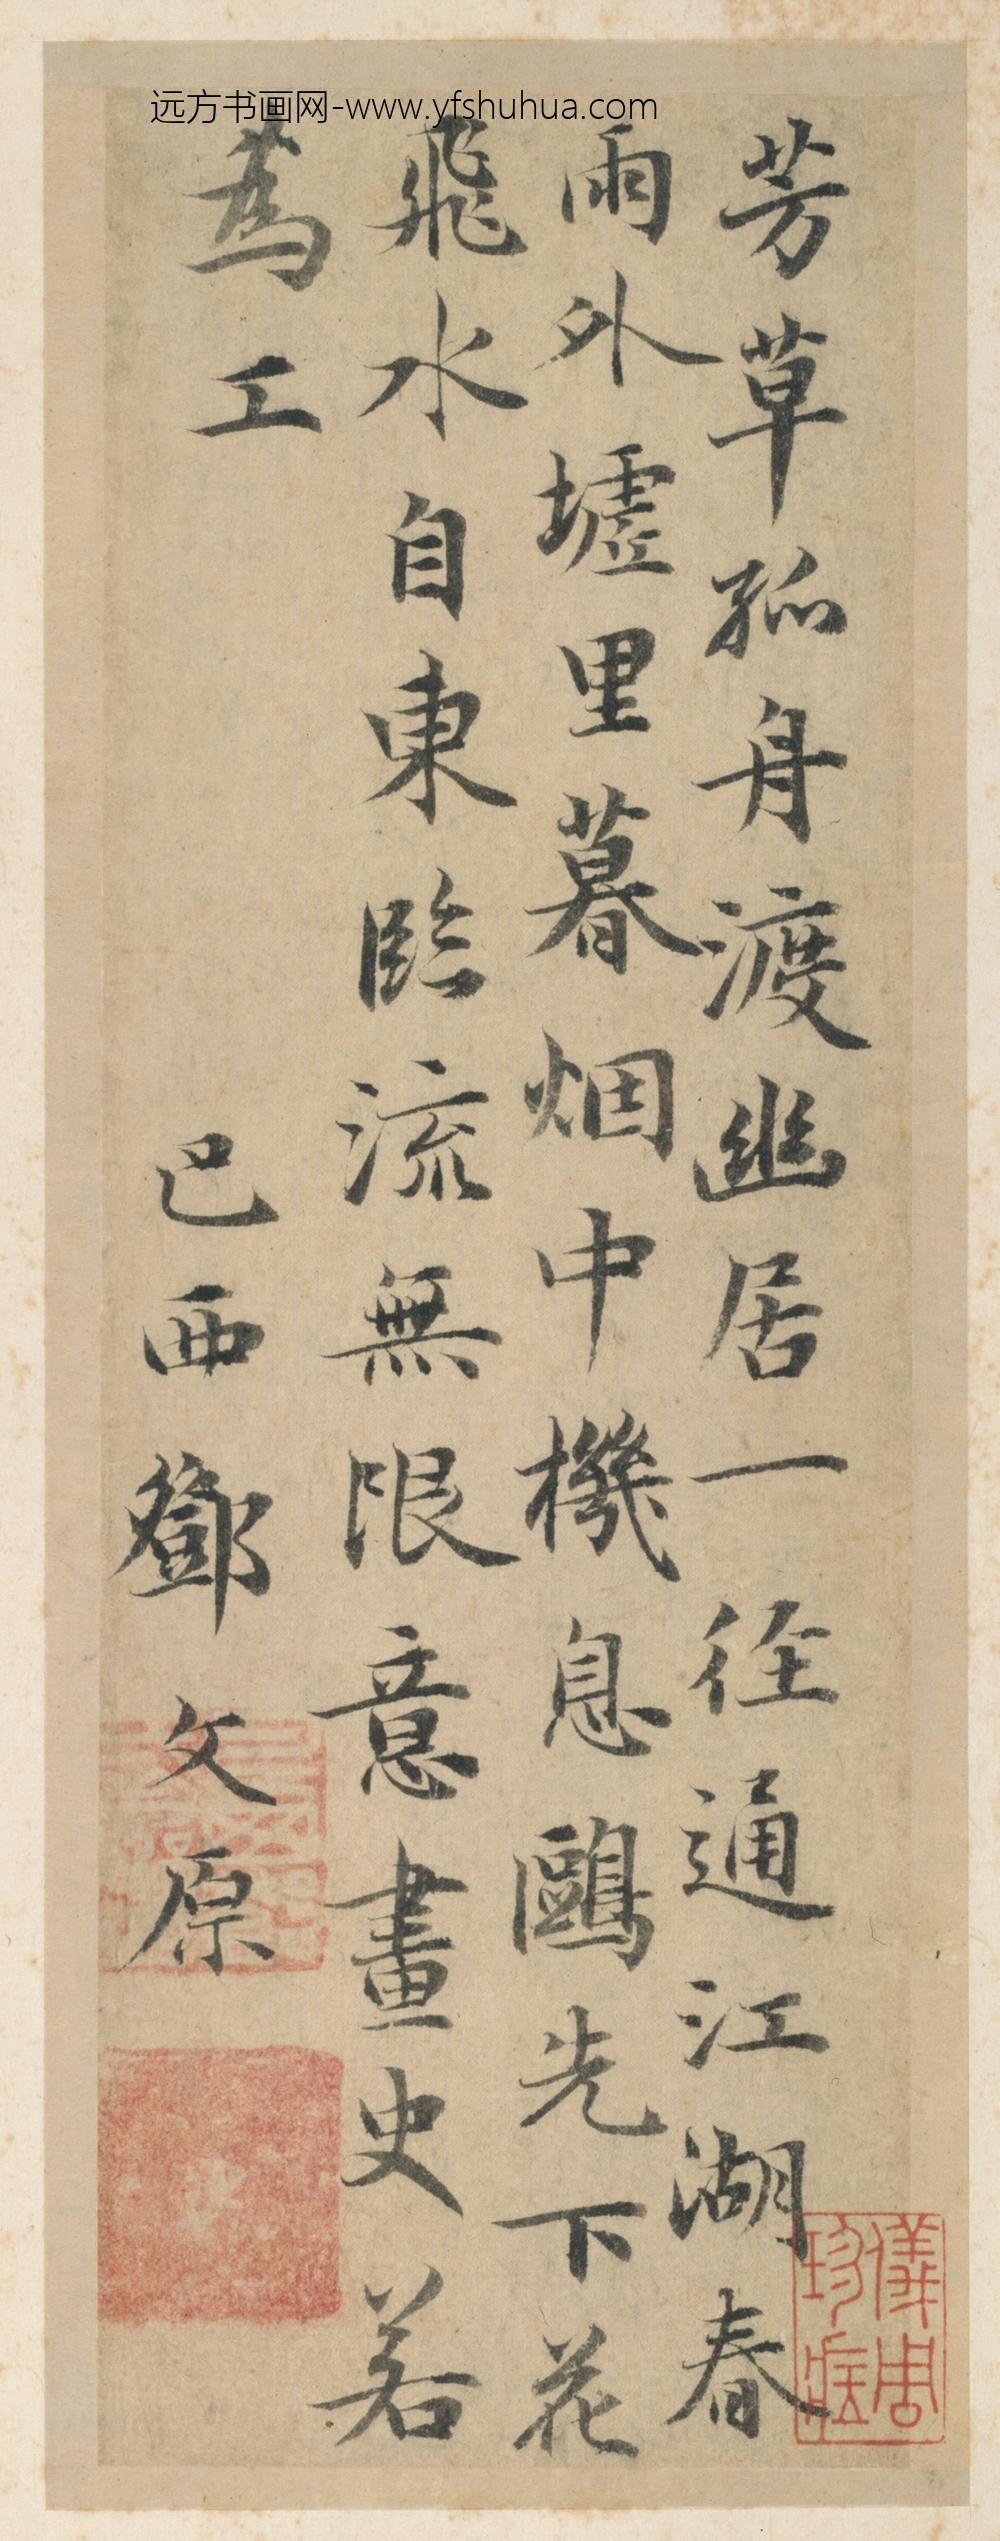 远方书画网-www.yfshuhua.com
芳草孤舟渡幽居一徑通江湖春
雨外墟里暮烟中機息鷗先下花
飛水自東臨流無限意畫史若
為工
已酉鄧文原
儀周
珍藏